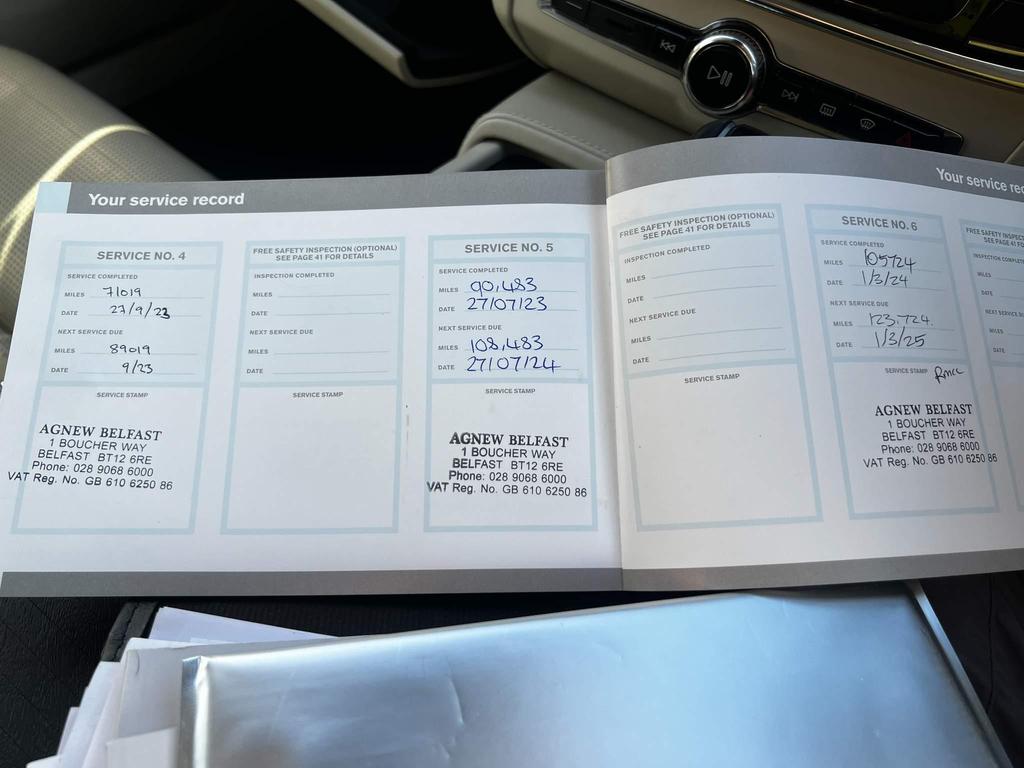 Your service record
SERVICE NO. 4
SERVICE COMPLETED
MILES 71019
DATE 27/9/23
NEXT SERVICE DUE
MILES 89019
DATE 9/23
SERVICE STAMP
AGNEW BELFAST
1 BOUCHER WAY
BELFAST BT12 6RE
Phone: 028 9068 6000
VAT Reg. No. GB 610 6250 86
FREE SAFETY INSPECTION (OPTIONAL)
SEE PAGE 41 FOR DETAILS
INSPECTION COMPLETED
MILES
DATE
NEXT SERVICE DUE
MILES
DATE
SERVICE STAMP
SERVICE NO. 5
SERVICE COMPLETED
MILES 90,483
DATE 27/07/23
NEXT SERVICE DUE
MILES 108,483
DATE 27/07/24
SERVICE STAMP
AGNEW BELFAST
1 BOUCHER WAY
BELFAST BT12 6RE
Phone: 028 9068 6000
VAT Reg. No. GB 610 6250 86
Your service rec
FREE SAFETY INSPECTION (OPTIONAL)
SEE PAGE 41 FOR DETAILS
INSPECTION COMPLETED
MILES
DATE
NEXT SERVICE DUE
MILES
DATE
SERVICE STAMP
SERVICE NO. 6
SERVICE COMPLETED
MILES 105724
DATE 1/3/24
NEXT SERVICE DUE
MILES 123,724.
DATE 1/3/25
SERVICE STAMP
AGNEW BELFAST
1 BOUCHER WAY
BELFAST BT12 6RE
Phone: 028 9068 6000
VAT Reg. No. GB 610 6250 86
FREE SAFETY INSPEC
SEE PAGE 41 FOR
INSPECTION COMPLET
MILES
DATE
NEXT SERVICE D
MILES
DATE